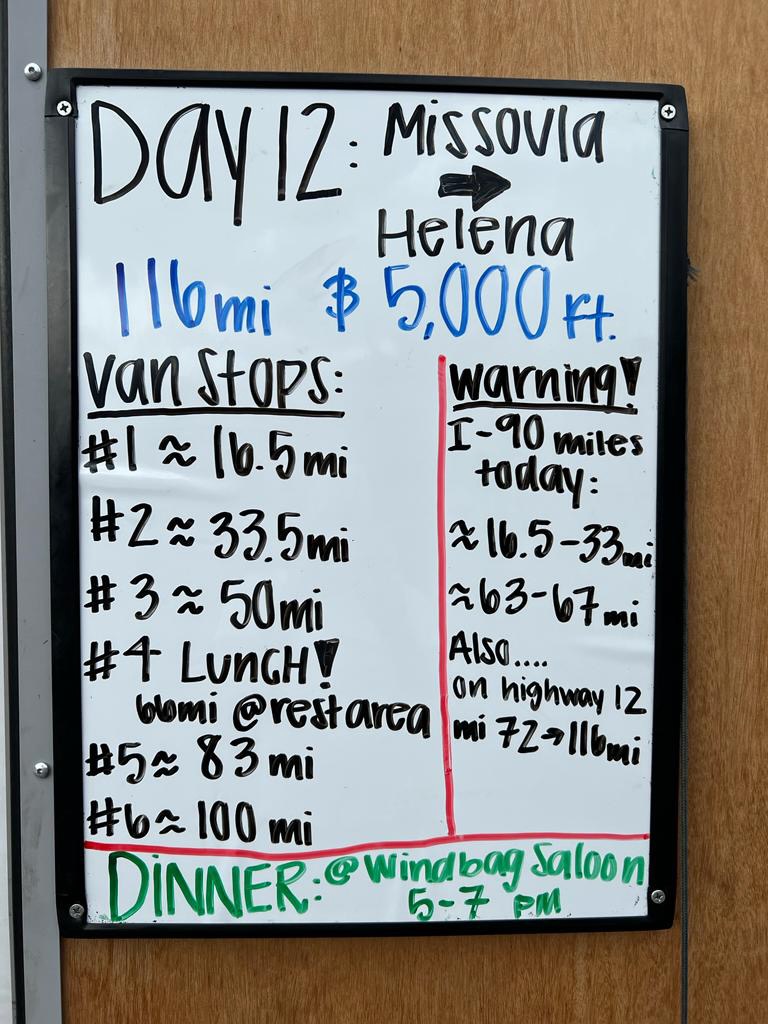 DAY 12: Missoula
➡
Helena
116mi & 5,000 ft.
Van Stops:
#1 ≈ 16.5mi
#2 ≈ 33.5mi
#3 ≈ 50mi
#4 LUNCH!
66mi @restarea
#5 ≈ 83mi
#6 ≈ 100 mi
Warning!
I-90 miles
today:
≈16.5-33mi
≈63-67mi
Also....
on highway 12
mi 72→116mi
DINNER: @Windbag Saloon
5-7 pm